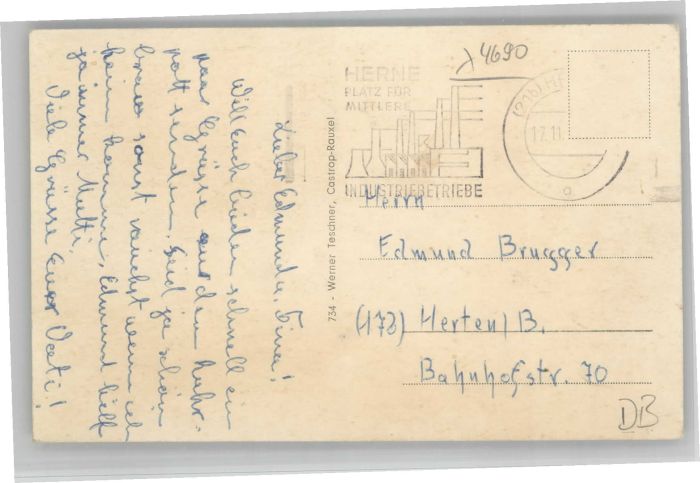 Lieber Edmund u. Tina!
Will euch lieden schnell ein
paar Grüsse aus den Ruhr-
pott senden. Seid ja schön
brav sonst raucht wenn ich
heim komme. Edmund hilf
ja immer Mutti.
Viele Grüsse Euer Vati!
734 - Werner Teschner, Castrop-Rauxel
λ 4690
HERNE
PLATZ FÜR
MITTLERE
INDUSTRIEBETRIEBE
(22b) HE
17.11.
a
Herrn
Edmund Brugger
(478) Herten/B.
Bahnhofstr. 70
DB